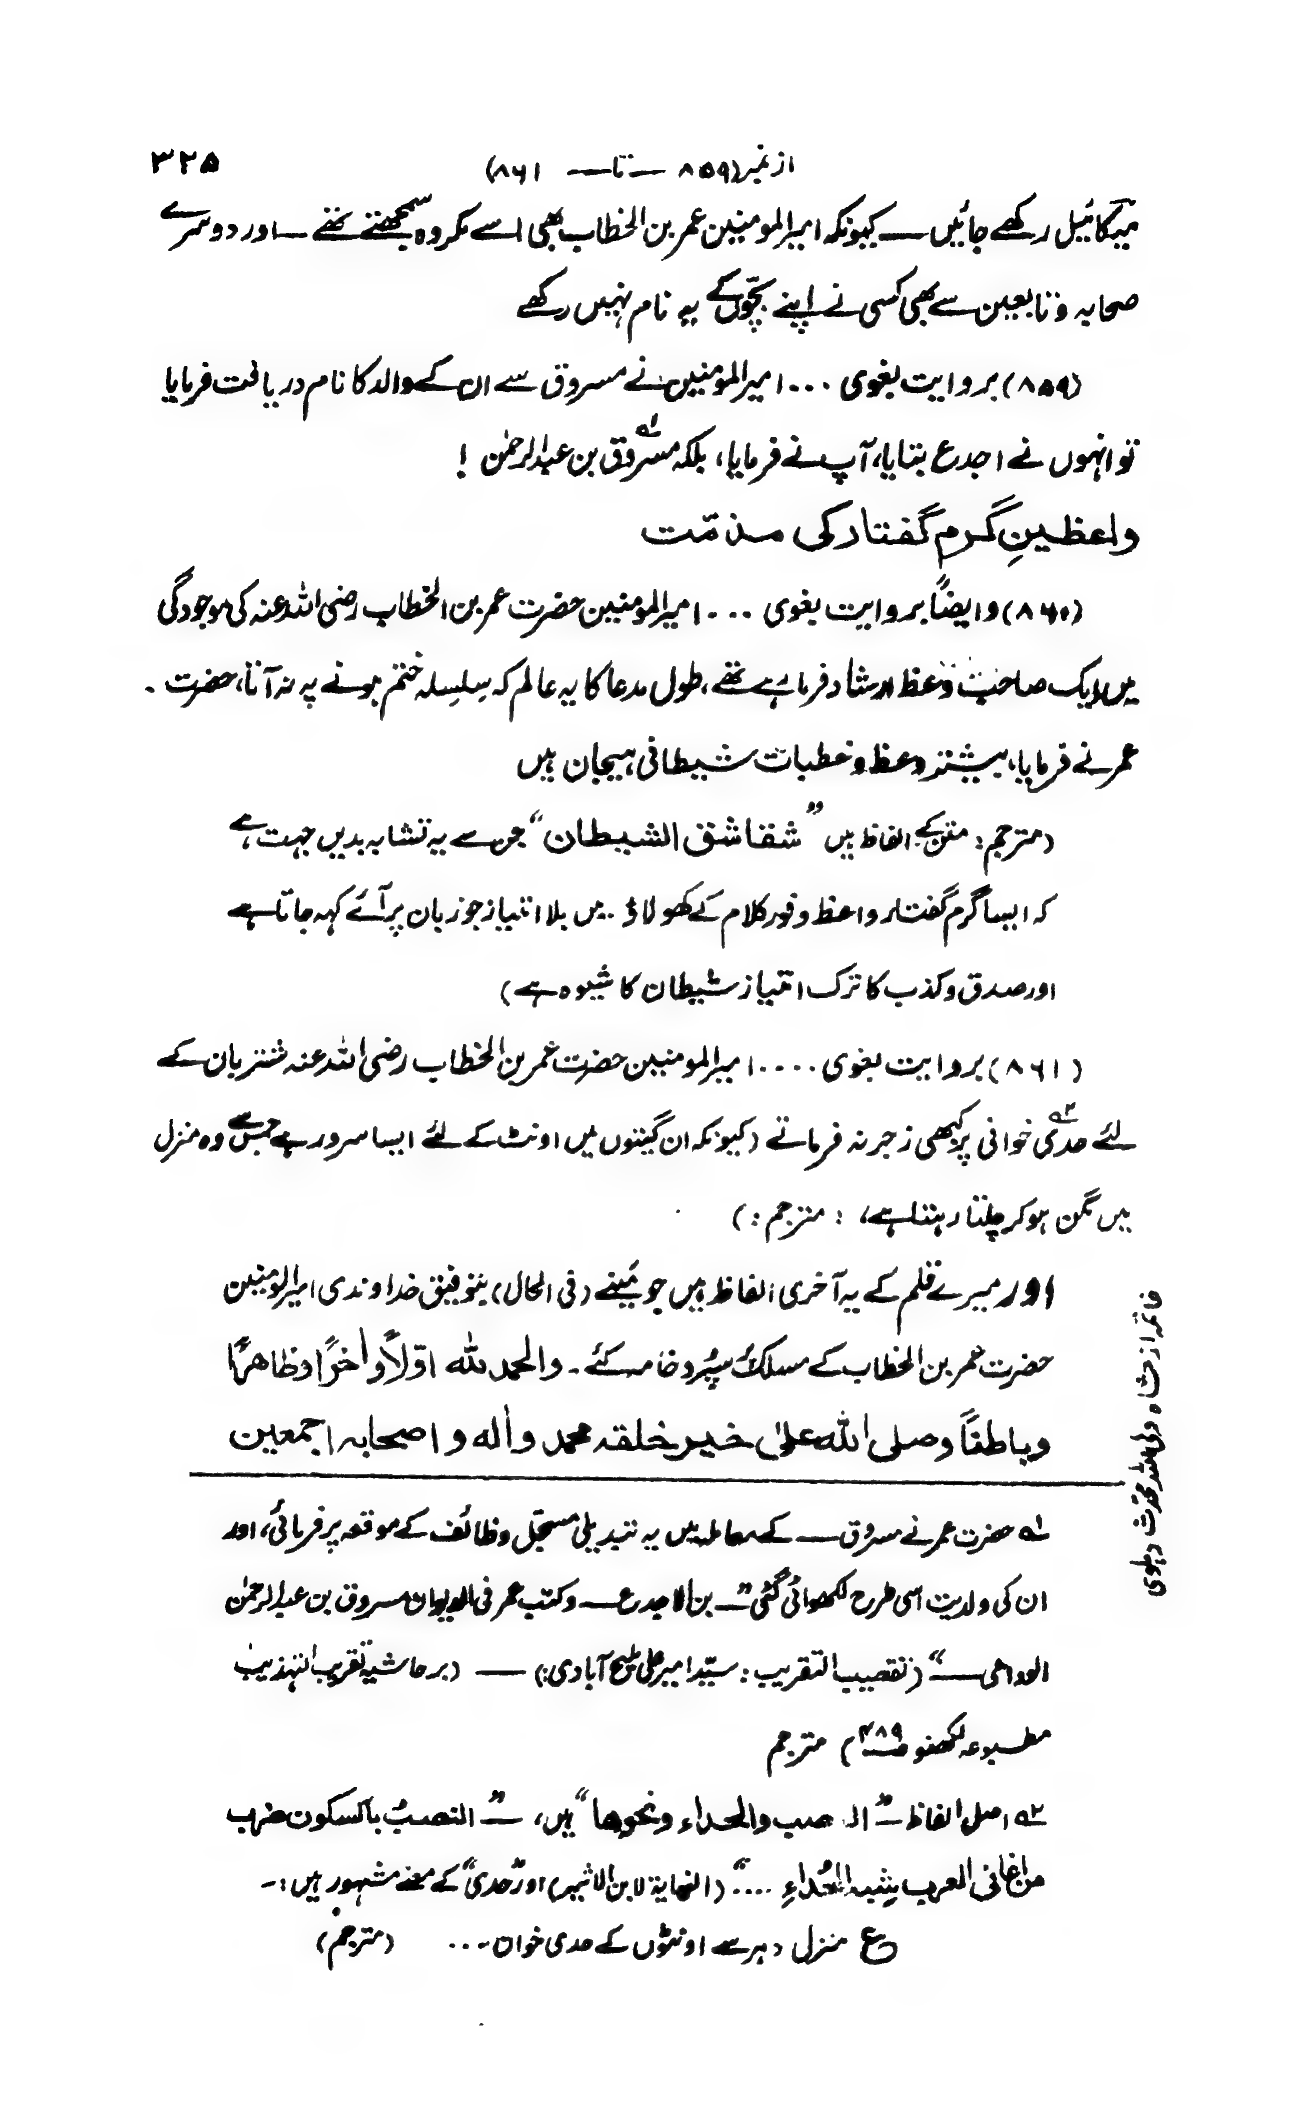 از نمبر (۸۵۹ — تا — ۸۶۱)
۳۲۵
میکائیل رکھے جائیں — کیونکہ امیرالمومنین عمر بن الخطاب بھی اسے مکروہ سمجھتے تھے — اور دوسرے
صحابہ و تابعین سے بھی کسی نے اپنے بچّوں کے یہ نام نہیں رکھے
(۸۵۹) بروایت بغوی ... امیرالمومنین نے مسروق سے ان کے والد کا نام دریافت فرمایا
تو انہوں نے اجدع بتایا، آپ نے فرمایا، بلکہ مسروق ۱؎ بن عبدالرحمٰن !
واعظینِ گرم گفتار کی مذمّت
(۸۶۰) و ایضاً بروایت بغوی ... امیرالمومنین حضرت عمر بن الخطاب رضی اللہ عنہ کی موجودگی
میں ایک صاحب وعظ ارشاد فرما رہے تھے، طول مدعا کا یہ عالم کہ سلسلہ ختم ہونے پہ نہ آتا، حضرت
عمر نے فرمایا، بیشتر وعظ و خطبات شیطانی ہیجان ہیں
(مترجم: متن کے الفاظ ہیں "شقاشق الشیطان" جن سے یہ تشابہ بدیں جہت ہے
کہ ایسا گرم گفتار واعظ وفور کلام کے کھولاؤ .. میں بلا امتیاز جو زبان پر آئے کہہ جاتا ہے
اور صدق و کذب کا ترک امتیاز شیطان کا شیوہ ہے)
(۸۶۱) بروایت بغوی .... امیرالمومنین حضرت عمر بن الخطاب رضی اللہ عنہ شتربان کے
لئے حدی ۲؎ خوانی پر کبھی زجر نہ فرماتے (کیونکہ ان گیتوں میں اونٹ کے لئے ایسا سرور ہے جس سے وہ منزل
میں مگن ہو کر چلتا رہتا ہے، : مترجم :)
اور میرے قلم کے یہ آخری الفاظ ہیں جو مَیں نے (فی الحال) بتوفیق خداوندی امیرالمومنین
حضرت عمر بن الخطاب کے مسلک پر سپُرد خامہ کئے ۔ والحمد للہ اوّلاً وآخراً و ظاھراً
وباطناً وصلی اللہ علیٰ خیر خلقہ محمد وآلہ و اصحابہ اجمعین
خاتمہ از شاہ ولی اللہ محدّث دہلوی
۱؎ حضرت عمر نے مسروق — کے معاملہ میں یہ تبدیلی مسجّل وظائف کے موقعہ پر فرمائی، اور
ان کی ولدیت اسی طرح لکھوائی گئی " — بن الاجدع — وکتب عمر فی الدیوان مسروق بن عبدالرحمٰن
الوداعی — " (تقصیب التقریب : سیّد امیر علی ملیح آبادی :) — (بر حاشیہ تقریب التہذیب
مطبوعہ لکھنو صـ ۴۸۹) مترجم
۲؎ اصل الفاظ — " النصب والحداء ونحوھا" ہیں، — " النصبُ بالسکون ضرب
من اغانی العرب یشبہ الحُداءِ ...." (النھایة لابن الاثیر) اور "حدی" کے معنے مشہور ہیں :۔
ع منزل دہر سے اونٹوں کے حدی خوان ... (مترجم)